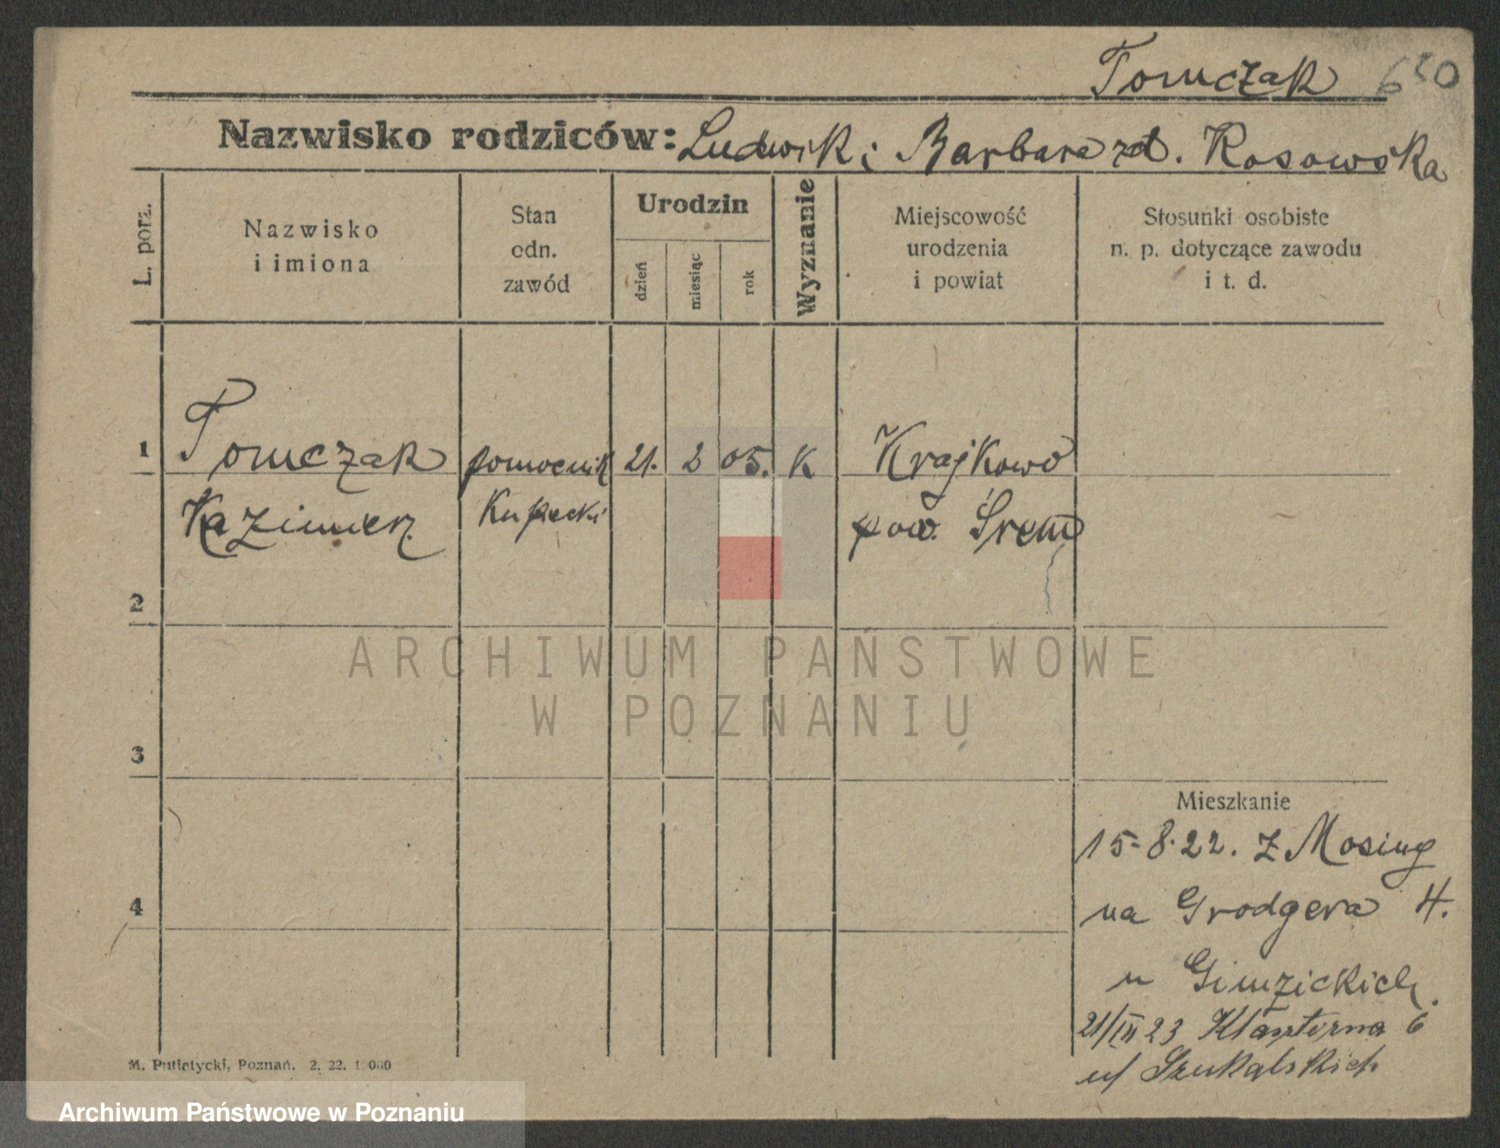 Tomczak 630
Nazwisko rodziców: Ludwik i Barbara zd. Rosowska
L. porz.
Nazwisko
i imiona
Stan
odn.
zawód
Urodzin
dzień
miesiąc
rok
Wyznanie
Miejscowość
urodzenia
i powiat
Stosunki osobiste
n. p. dotyczące zawodu
i t. d.
1 Tomczak pomocnik 21. 2 05. K Krajkowo
Kazimierz kupiecki pow. Śrem
2
ARCHIWUM PAŃSTWOWE
W POZNANIU
3
Mieszkanie
15-8-22. z Mosiny
na Grodgera 4.
4
u
21/III 23 Klasztorna 6
u/ Szukalskich
M. Putiatycki, Poznań. 2. 22.
Archiwum Państwowe w Poznaniu